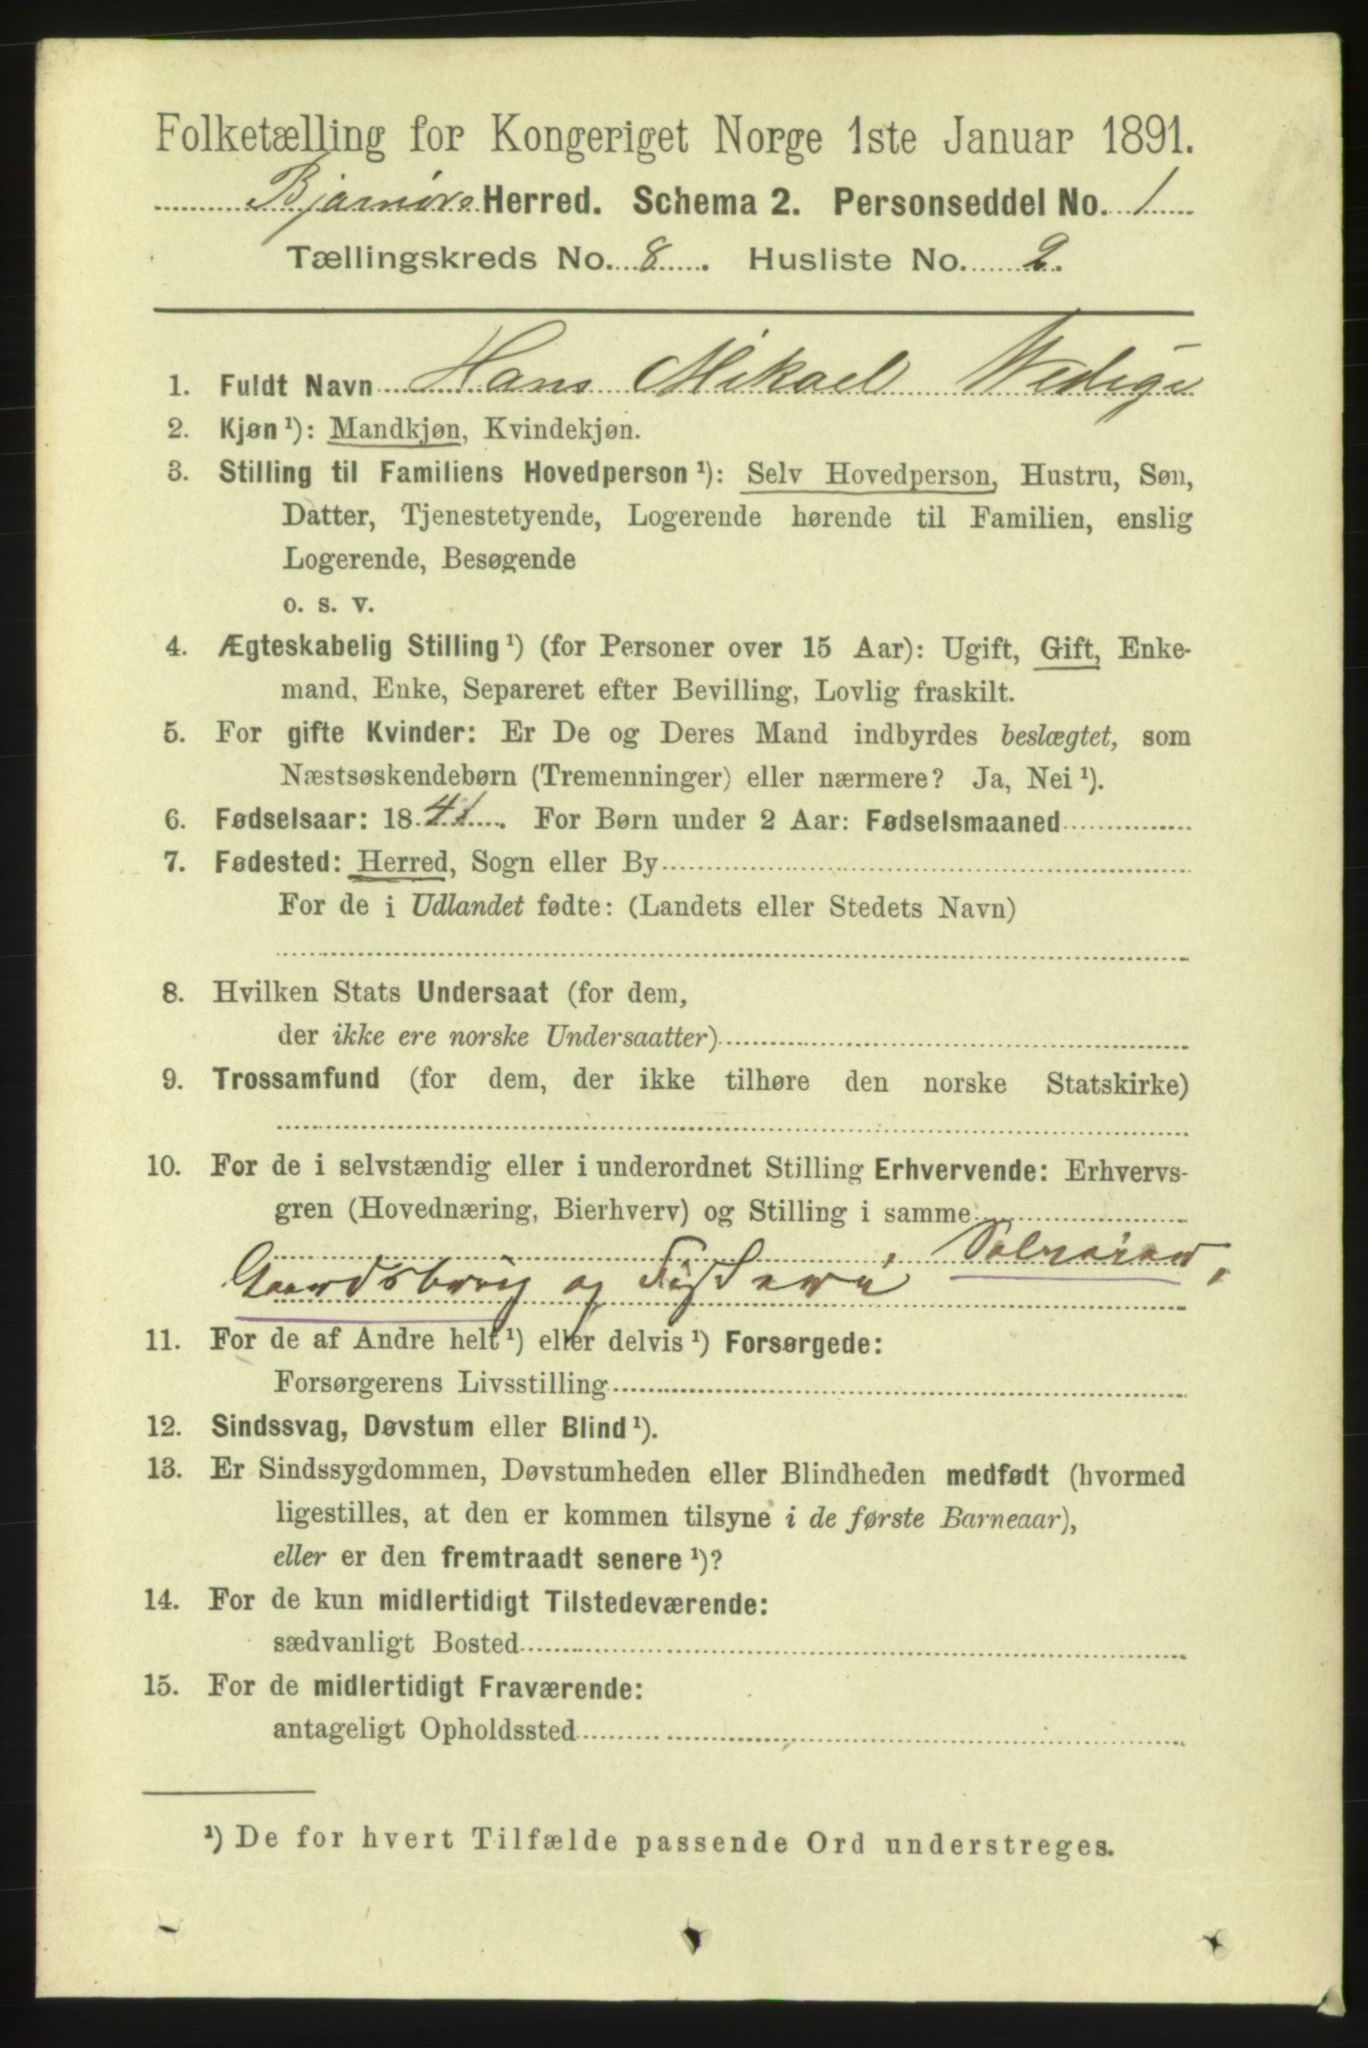 Folketælling for Kongeriget Norge 1ste Januar 1891.
Bjarnørs Herred. Schema 2. Personseddel No. 1
Tællingskreds No. 8. Husliste No. 2.
1. Fuldt Navn Hans Mikael Wedige
2. Kjøn¹): Mandkjøn, Kvindekjøn.
3. Stilling til Familiens Hovedperson¹): Selv Hovedperson, Hustru, Søn,
Datter, Tjenestetyende, Logerende hørende til Familien, enslig
Logerende, Besøgende
o. s. v.
4. Ægteskabelig Stilling¹) (for Personer over 15 Aar): Ugift, Gift, Enke-
mand, Enke, Separeret efter Bevilling, Lovlig fraskilt.
5. For gifte Kvinder: Er De og Deres Mand indbyrdes beslægtet, som
Næstsøskendebørn (Tremenninger) eller nærmere? Ja, Nei¹).
6. Fødselsaar: 1841. For Børn under 2 Aar: Fødselsmaaned
7. Fødested: Herred, Sogn eller By
For de i Udlandet fødte: (Landets eller Stedets Navn)
8. Hvilken Stats Undersaat (for dem,
der ikke ere norske Undersaatter)
9. Trossamfund (for dem, der ikke tilhøre den norske Statskirke)
10. For de i selvstændig eller i underordnet Stilling Erhvervende: Erhvervs-
gren (Hovednæring, Bierhverv) og Stilling i samme
Gaardsbrug og Fiskeri Selveier,
11. For de af Andre helt¹) eller delvis¹) Forsørgede:
Forsørgerens Livsstilling
12. Sindssvag, Døvstum eller Blind¹).
13. Er Sindssygdommen, Døvstumheden eller Blindheden medfødt (hvormed
ligestilles, at den er kommen tilsyne i de første Barneaar),
eller er den fremtraadt senere¹)?
14. For de kun midlertidigt Tilstedeværende:
sædvanligt Bosted
15. For de midlertidigt Fraværende:
antageligt Opholdssted
¹) De for hvert Tilfælde passende Ord understreges.